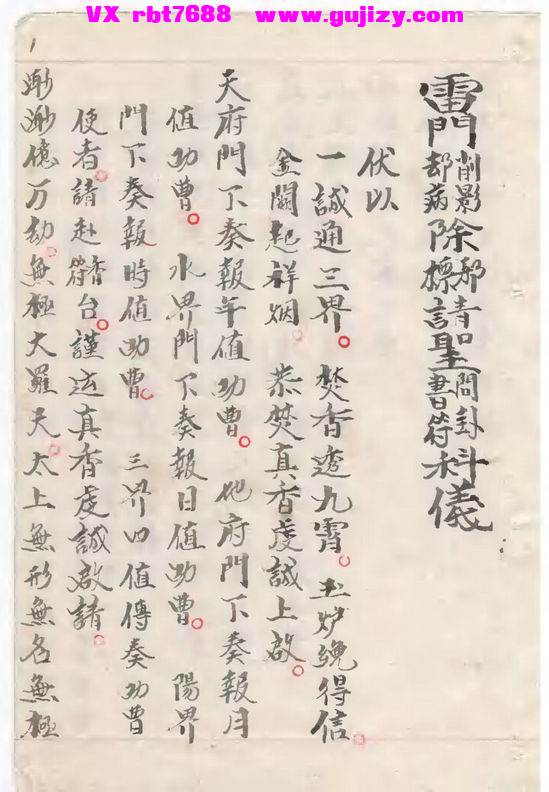 VX rbt7688 www.gujizy.com
1
雷門削影却病除邪標請聖問卦書符科儀
伏以
一誠通三界。焚香透九霄。玉炉纔得信。
金闕起祥烟。恭焚真香虔誠上啟。
天府門下奏報年值功曹。地府門下奏報月
值功曹。水界門下奏報日值功曹。陽界
門下奏報時值功曹。三界四值傳奏功曹
使者。請赴香台。謹运真香虔誠啟請。
渺渺億万劫。無極大羅天。太上無形無名無極